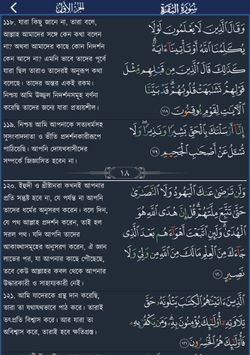 سورة البقرة
الجزء الأول
১১৮. যারা কিছু জানে না, তারা বলে,
আল্লাহ আমাদের সঙ্গে কেন কথা বলেন
না? অথবা আমাদের কাছে কোন নিদর্শন
কেন আসে না? এমনি ভাবে তাদের পূর্বে
যারা ছিল তারাও তাদেরই অনুরূপ কথা
বলেছে। তাদের অন্তর একই রকম।
নিশ্চয় আমি উজ্জ্বল নিদর্শনসমূহ বর্ণনা
করেছি তাদের জন্যে যারা প্রত্যয়শীল।
وَقَالَ الَّذِينَ لَا يَعْلَمُونَ لَوْلَا
يُكَلِّمُنَا اللَّهُ أَوْ تَأْتِينَا آيَةٌ
كَذَٰلِكَ قَالَ الَّذِينَ مِن قَبْلِهِم مِّثْلَ
قَوْلِهِمْ تَشَابَهَتْ قُلُوبُهُمْ قَدْ بَيَّنَّا
الْآيَاتِ لِقَوْمٍ يُوقِنُونَ ١١٨
১১৯. নিশ্চয় আমি আপনাকে সত্যধর্মসহ
সুসংবাদদাতা ও ভীতি প্রদর্শনকারীরূপে
পাঠিয়েছি। আপনি দোযখবাসীদের
সম্পর্কে জিজ্ঞাসিত হবেন না।
إِنَّا أَرْسَلْنَاكَ بِالْحَقِّ بَشِيرًا وَنَذِيرًا وَلَا
تُسْأَلُ عَنْ أَصْحَابِ الْجَحِيمِ ١١٩
١٨
১২০. ইহুদী ও খ্রীষ্টানরা কখনই আপনার
প্রতি সন্তুষ্ট হবে না, যে পর্যন্ত না আপনি
তাদের ধর্মের অনুসরণ করেন। বলে দিন,
যে পথ আল্লাহ প্রদর্শন করেন, তাই হল
সরল পথ। যদি আপনি তাদের
আকাঙ্খাসমূহের অনুসরণ করেন, ঐ জ্ঞান
লাভের পর, যা আপনার কাছে পৌঁছেছে,
তবে কেউ আল্লাহর কবল থেকে আপনার
উদ্ধারকারী ও সাহায্যকারী নেই।
وَلَن تَرْضَىٰ عَنكَ الْيَهُودُ وَلَا النَّصَارَىٰ
حَتَّىٰ تَتَّبِعَ مِلَّتَهُمْ قُلْ إِنَّ هُدَى اللَّهِ هُوَ
الْهُدَىٰ وَلَئِنِ اتَّبَعْتَ أَهْوَاءَهُم بَعْدَ الَّذِي
جَاءَكَ مِنَ الْعِلْمِ مَا لَكَ مِنَ اللَّهِ مِن وَلِيٍّ وَلَا
نَصِيرٍ ١٢٠
১২১. আমি যাদেরকে গ্রন্থ দান করেছি,
তারা তা যথাযথভাবে পাঠ করে। তারাই
তৎপ্রতি বিশ্বাস করে। আর যারা তা
অবিশ্বাস করে, তারাই হবে ক্ষতিগ্রস্ত।
الَّذِينَ آتَيْنَاهُمُ الْكِتَابَ يَتْلُونَهُ حَقَّ
تِلَاوَتِهِ أُولَٰئِكَ يُؤْمِنُونَ بِهِ وَمَن يَكْفُرْ بِهِ
فَأُولَٰئِكَ هُمُ الْخَاسِرُونَ ١٢١